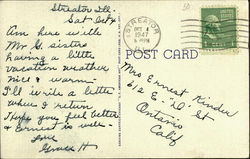 Streator Ill.
Sat Oct 4
Am here with
Mr G. sisters
having a little
vacation weather
nice & warm.
I'll write a letter
when I return
Hope you feel better
& Ernest is well
Love
Grace H
STREATOR
OCT 4
1947
POST CARD
Mrs Ernest Kinder
612 E - "D" St
Ontario
Calif